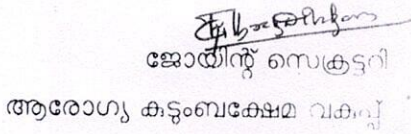 ജോയിന്റ് സെക്രട്ടറി
ആരോഗ്യ കുടുംബക്ഷേമ വകുപ്പ്